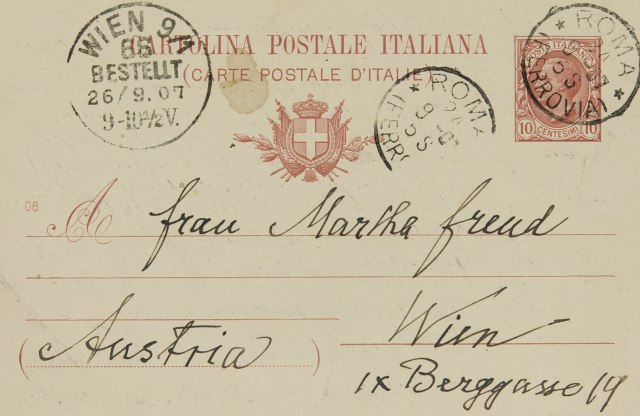 WIEN 9/1
66
BESTELLT
26/9.07
9-10½V.
CARTOLINA POSTALE ITALIANA
(CARTE POSTALE D'ITALIE)
ROMA
(FERROVIA)
ROMA
(FERR
10 CENTESIMI 10
06
A Frau Martha Freud
Wien
(Austria)
IX Berggasse 19